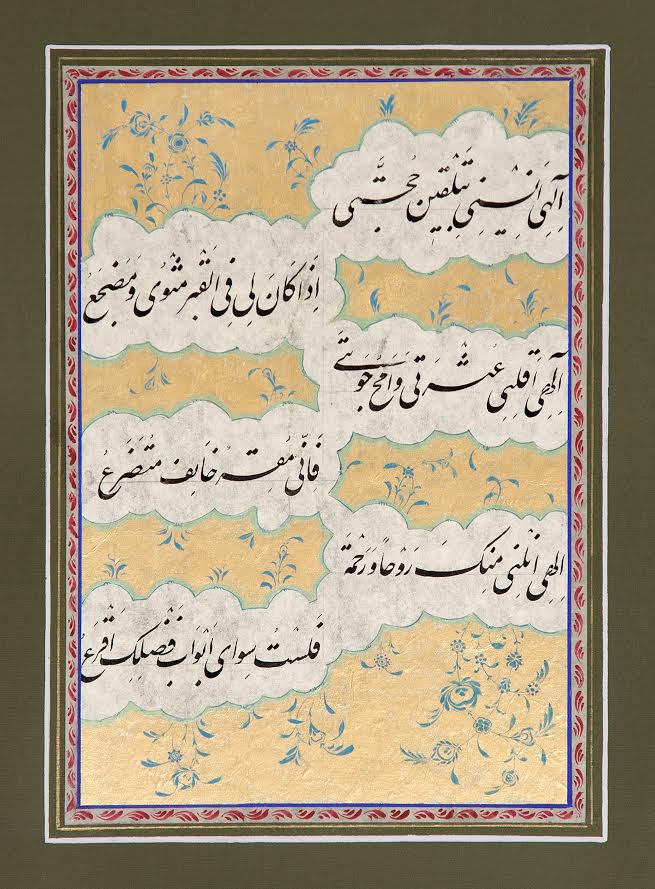 اِلٰهِی اَنِسْنِی بِتَلْقِین حُجَّتی
اِذَا کَانَ لِی فِی الْقَبْرِ مَثْوًی وَ مَضْجَعُ
اِلٰهِی اَقِلْنِی عَثْرَتی وَامْحُ حَوْبَتے
فَاِنّی مُقِرٌ خَایِف مُتَضَرِّعُ
اِلٰهِی اَنِلْنِی مِنْکَ رَوْحًا وَ رَحْمَةً
فَلَسْتُ سِوای اَبْوَابَ فَضْلِکَ اَقْرَعُ